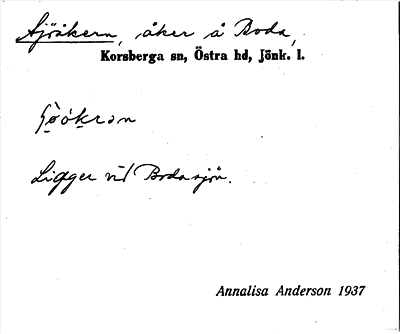 Sjöåkern, åker å Boda,
Korsberga sn, Östra hd, Jönk. l.
Ligger vid Bodasjön.
Annalisa Anderson 1937